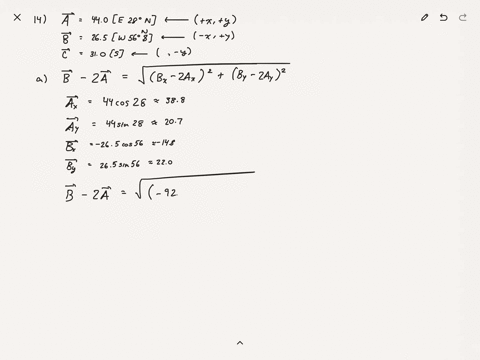 14) A = 44.0 [E 28° N] ← (+x, +y)
B = 26.5 [W 56° N] ← (-x, +y)
C = 31.0 [S] ← ( , -y)
a) B - 2A = √(Bx - 2Ax)² + (By - 2Ay)²
Ax = 44 cos 28 ≈ 38.8
Ay = 44 sin 28 ≈ 20.7
Bx = -26.5 cos 56 ≈ -14.8
By = 26.5 sin 56 = 22.0
B - 2A = √(-92